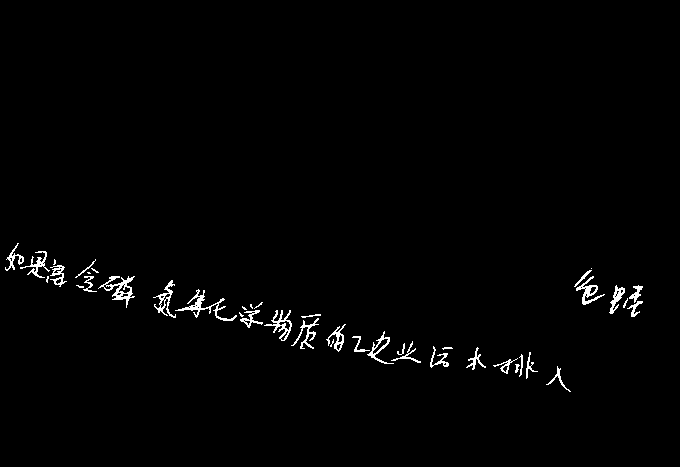 如是高含磷氮等化学物质的工业污水排入
色